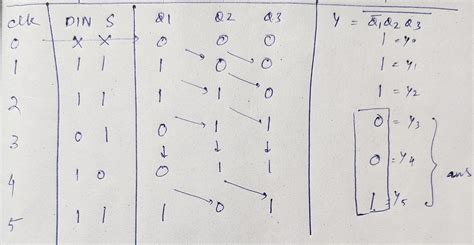 clk DIN S Q1 Q2 Q3 Y = \overline{Q1Q2Q3}
0 x x 0 0 0 1 = y0
1 1 1 1 0 0 1 = y1
2 1 1 1 1 0 1 = y2
3 0 1 0 1 1 0 = y3
4 1 0 0 1 1 0 = y4 ans
5 1 1 1 0 1 1 = y5